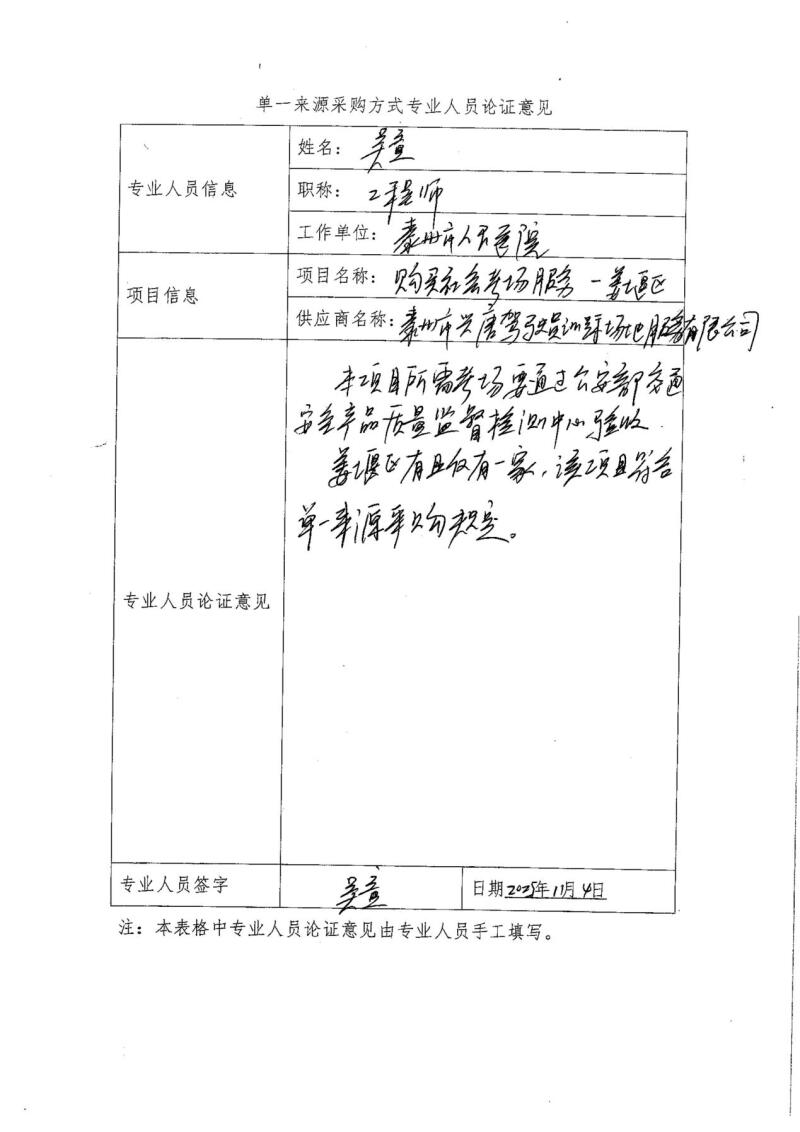 单一来源采购方式专业人员论证意见
专业人员信息
姓名：吴
职称：工程师
工作单位：泰州市人民医院
项目信息
项目名称：购买社会考场服务—姜堰区
供应商名称：泰州市兴唐驾驶员训练场地服务有限公司
专业人员论证意见
本项目所需考场要通过公安部交通
安全产品质量监督检测中心验收.
姜堰区有且仅有一家，该项目符合
单一来源采购规定。
专业人员签字
吴
日期2025年11月4日
注：本表格中专业人员论证意见由专业人员手工填写。